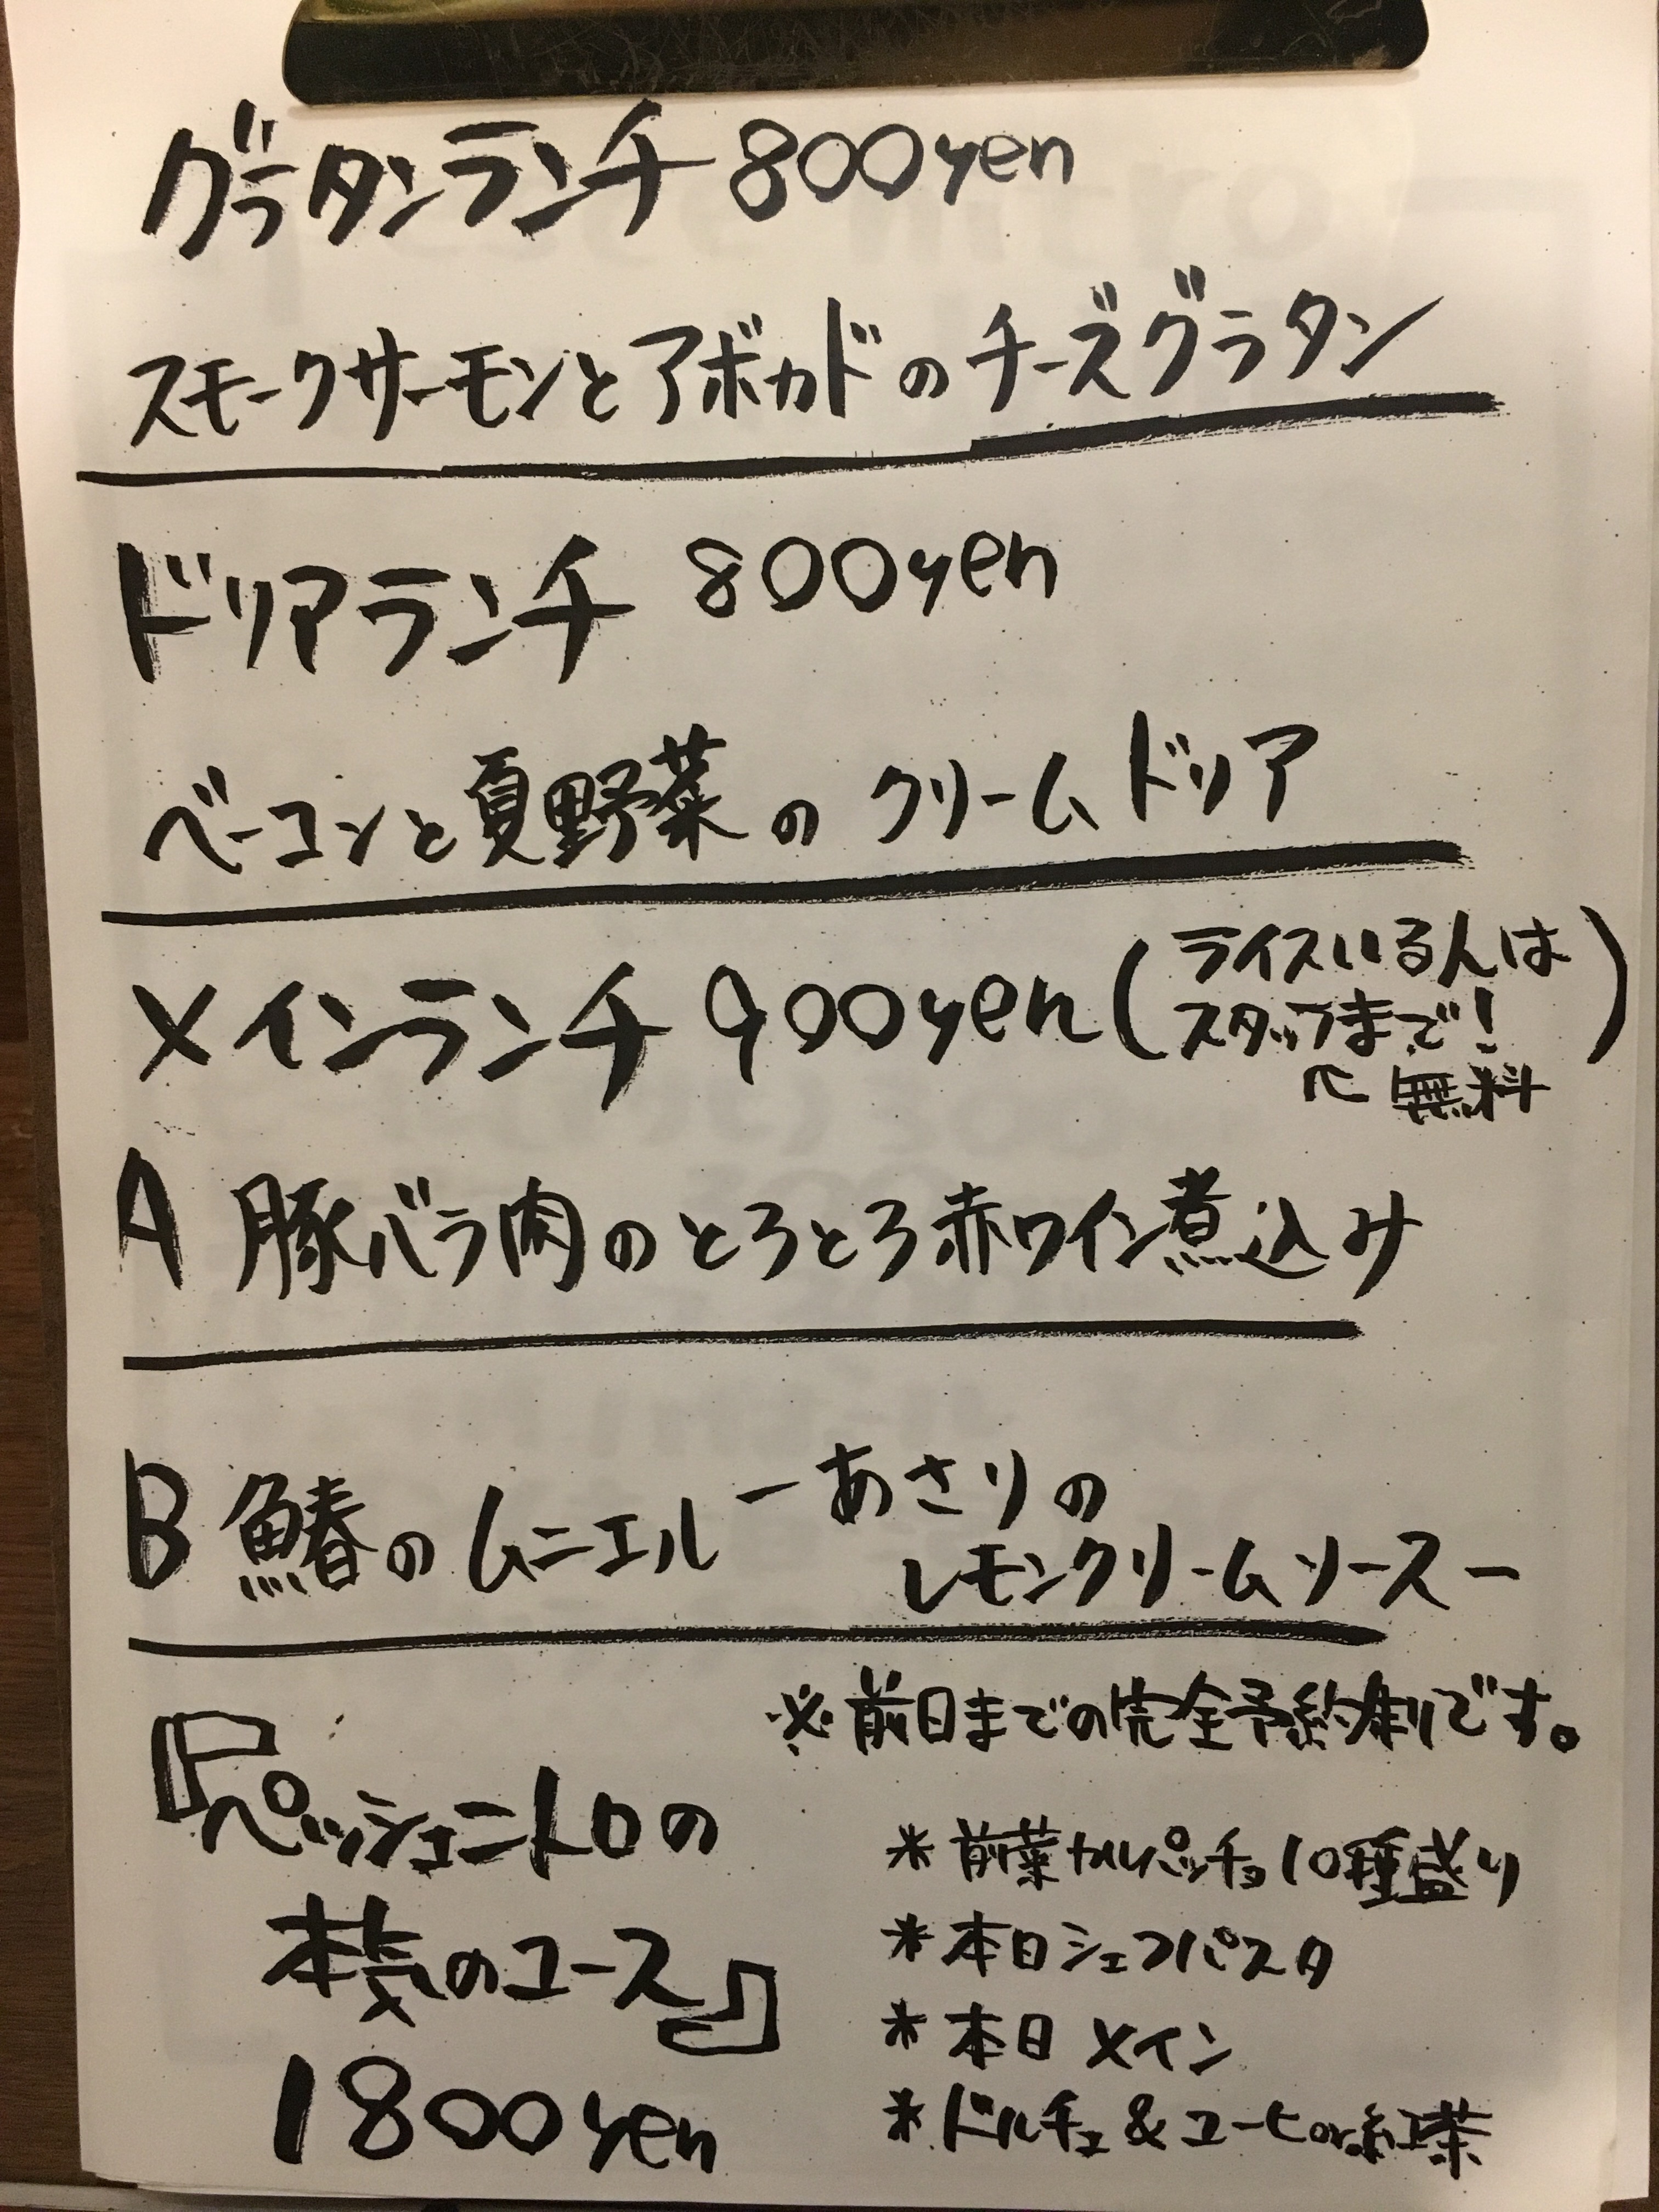 グラタンランチ 800yen
スモークサーモンとアボカドのチーズグラタン
ドリアランチ 800yen
ベーコンと夏野菜のクリームドリア
メインランチ 900yen (ライスいる人は
スタッフまで!)
無料
A 豚バラ肉のとろとろ赤ワイン煮込み
B 鰆のムニエル ーあさりの
レモンクリームソースー
※前日までの完全予約制です。
『ペッシェニトロの
本気のコース』
1800yen
*前菜カルパッチョ10種盛り
*本日シェフパスタ
*本日メイン
*ドルチェ&コーヒor紅茶